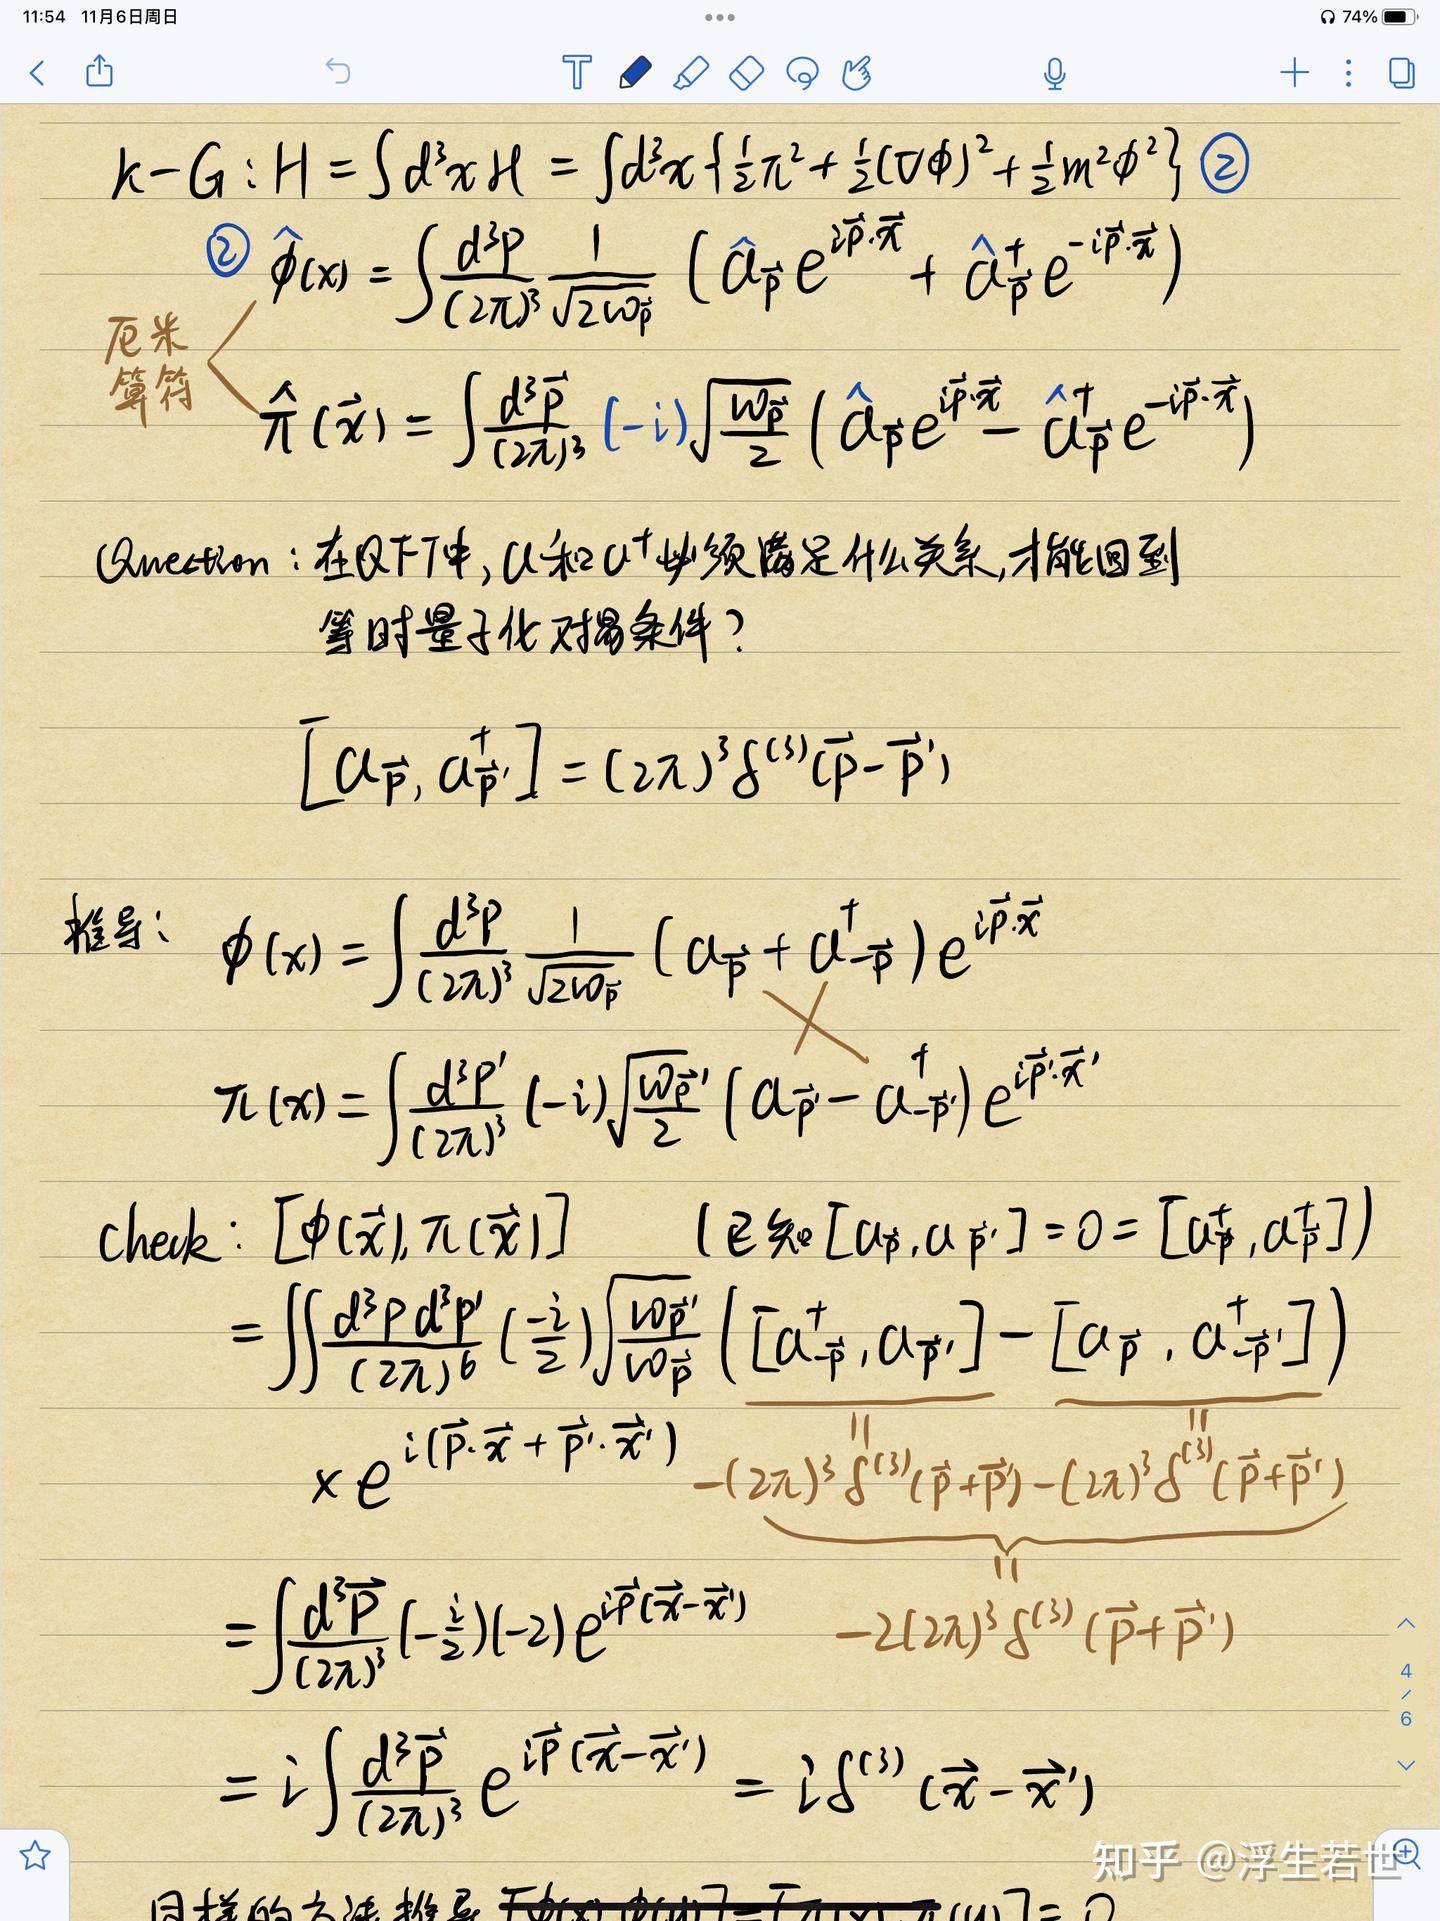 11:54 11月6日周日
74%
K-G: H = ∫d³x ℋ = ∫d³x {½π² + ½(∇φ)² + ½m²φ²} ②
② φ̂(x) = ∫ d³p/(2π)³ 1/√(2ω_p⃗) (â_p⃗ e^{ip⃗·x⃗} + â†_p⃗ e^{-ip⃗·x⃗})
厄米
算符
π̂(x⃗) = ∫ d³p⃗/(2π)³ (-i)√(ω_p⃗/2) (â_p⃗ e^{ip⃗·x⃗} - â†_p⃗ e^{-ip⃗·x⃗})
Question: 在QFT中, a和a†必须满足什么关系,才能回到
等时量子化对易条件?
[a_p⃗, a†_p⃗'] = (2π)³δ⁽³⁾(p⃗-p⃗')
推导: φ(x) = ∫ d³p/(2π)³ 1/√(2ω_p⃗) (a_p⃗ + a†_-p⃗) e^{ip⃗·x⃗}
π(x) = ∫ d³p'/(2π)³ (-i)√(ω_p⃗'/2) (a_p⃗' - a†_-p⃗') e^{ip⃗'·x⃗'}
check: [φ(x⃗), π(x⃗)] (已知 [a_p⃗, a_p⃗'] = 0 = [a†_p⃗, a†_p⃗])
= ∬ d³p d³p'/(2π)⁶ (-i/2) √(ω_p⃗'/ω_p⃗) ([a†_-p⃗, a_p⃗'] - [a_p⃗, a†_-p⃗'])
× e^{i(p⃗·x⃗ + p⃗'·x⃗')} -(2π)³δ⁽³⁾(p⃗+p⃗') -(2π)³δ⁽³⁾(p⃗+p⃗')
= ∫ d³p⃗/(2π)³ (-i/2)(-2) e^{ip⃗(x⃗-x⃗')} -2(2π)³δ⁽³⁾(p⃗+p⃗')
= i∫ d³p⃗/(2π)³ e^{ip⃗(x⃗-x⃗')} = iδ⁽³⁾(x⃗-x⃗')
4/6
知乎 @浮生若世
同样的方法推导